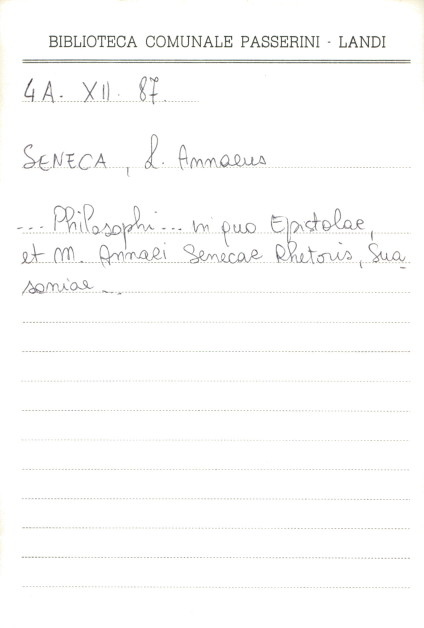 BIBLIOTECA COMUNALE PASSERINI - LANDI
4A. XII. 87.
SENECA, L. Annaeus
... Philosophi... in quo Epistolae,
et M. Annaei Senecae Rhetoris, Sua_
soriae ...